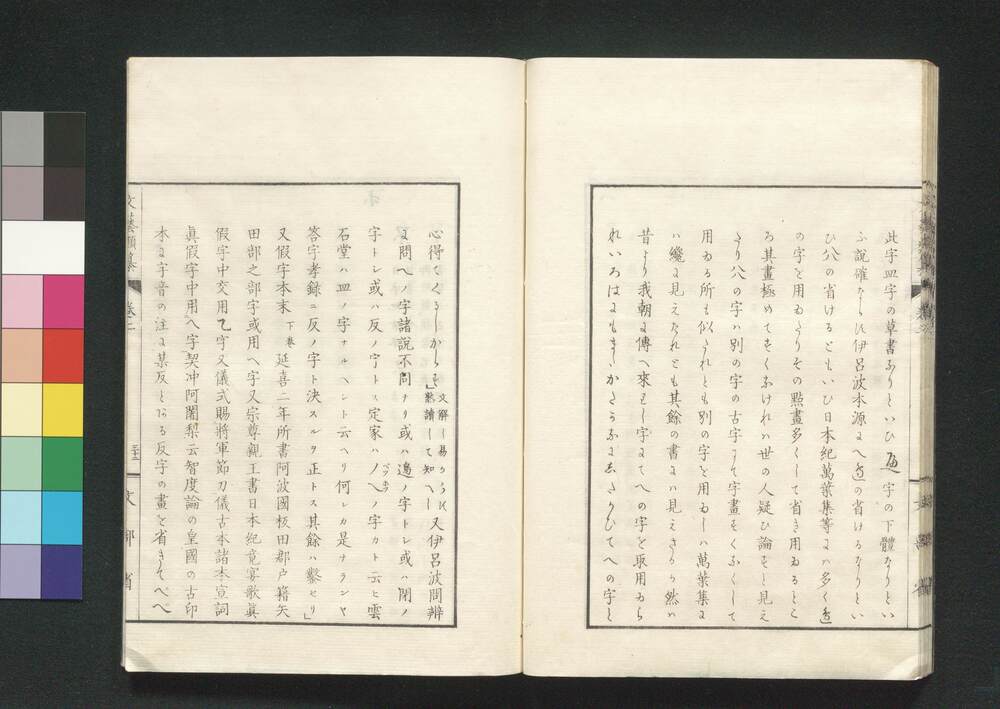 此字皿字の草書ありといひ 字の下體なりとい
ふ說確ならひ伊呂波本源に の省けるなりとい
ひ八の省けるともいひ日本紀萬葉集等には多く
の字を用ゐたりその點畫多くして省き用ゐるとこ
ろ其畫極めてすくふければ世の人疑ひ論すと見え
たり八の字ハ別の字の古字にて字畫すくふくして
用ゐる所も似されとも別の字を用ゐしハ萬葉集に
ハ纔に見えたれとも其餘の書にハ見えさるら然ハ
昔より我朝に傳へ來れし字にてへの字を取用ゐら
れいろはにも
心得てくるしからす」文解し易からん熟讀して知へし又伊呂波問辨
に問ヘノ字諸說不同ナリ或ハ邉ノ字トシ或ハ閇ノ
字トシ或ハ反ノ字トス定家ハノ ノ字カト云ヒ雲
石堂ハ皿ノ字ナルヘシト云ヘリ何レカ是ナランヤ
答字孝錄ニ反ノ字ト決スルヲ正トス其餘ハ鑿セリ」
又假字本末下卷延喜二年所書阿波國板田郡戸籍矢
田部之部字或用ヘ字又宗尊親王書日本紀竟宴歌眞
假字中交用乙字又儀式賜將軍節刀儀古本諸本宣詞
眞假字中用ヘ字契沖阿闍梨云智度論の皇國の古印
本に字音の注に某反とある反字の畫を省きて
文藝類纂
卷二
文部省